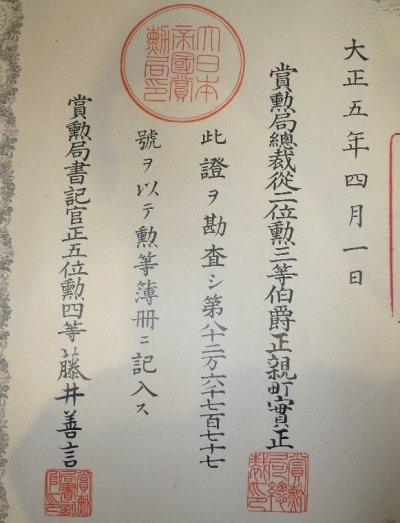 大正五年四月一日
賞勲局總裁從二位勲三等伯爵正親町實正
賞勲局總裁印
此證ヲ勘査シ第八十二万六千七百七十七
大日本帝國賞勲局印
號ヲ以テ勲等簿册ニ記入ス
賞勲局書記官正五位勲四等藤井善言